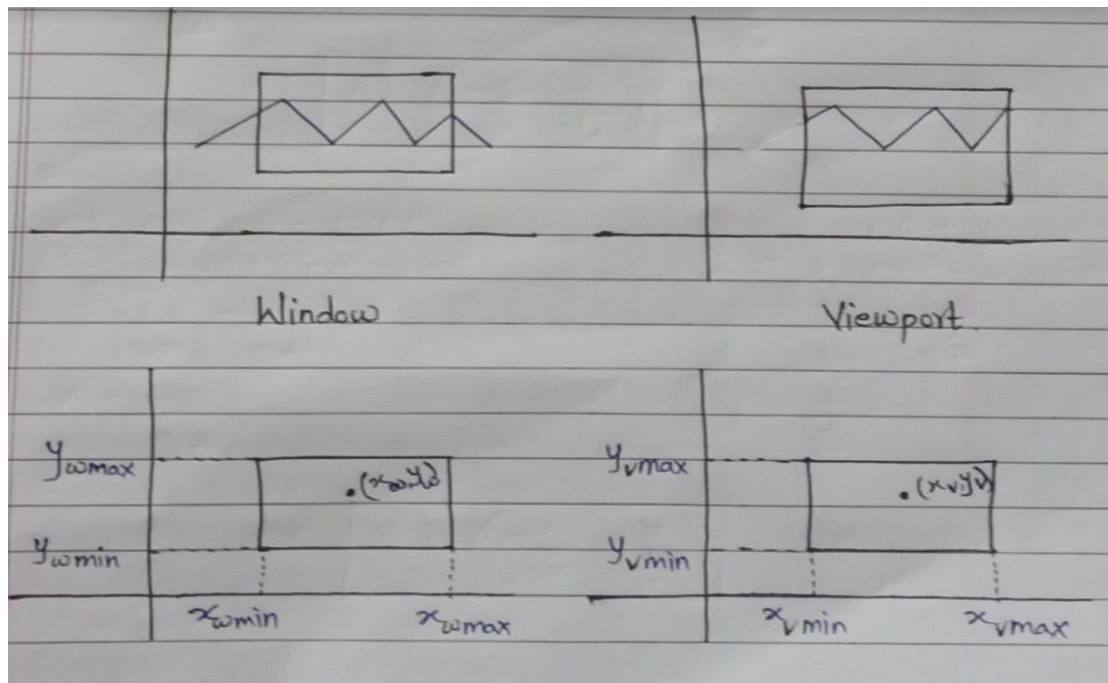 Window
Viewport.
ywmax
.(xw,yw)
ywmin
xwmin
xwmax
yvmax
.(xv,yv)
yvmin
xvmin
xvmax